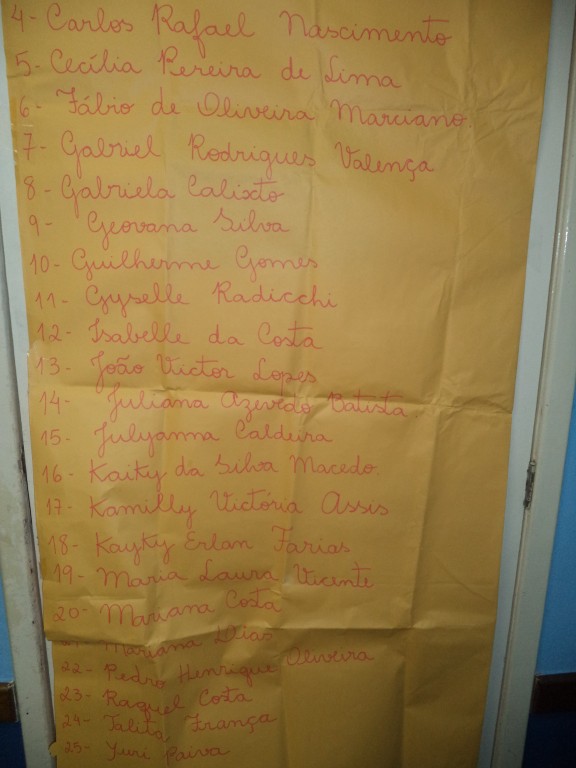 4- Carlos Rafael Nascimento
5- Cecília Pereira de Lima
6- Fábio de Oliveira Marciano.
7- Gabriel Rodrigues Valença
8- Gabriela Calixto
9- Geovana Silva
10- Guilherme Gomes
11- Gyselle Radicchi
12- Isabelle da Costa
13- João Victor Lopes
14- Juliana Azevedo Batista
15- Julyanna Caldeira
16- Kaiky da Silva Macedo.
17- Kamilly Victória Assis
18- Kayky Erlan Farias
19- Maria Laura Vicente
20- Mariana Costa
21- Mariana Dias
22- Pedro Henrique Oliveira
23- Raquel Costa
24- Talita França
25- Yuri Paiva